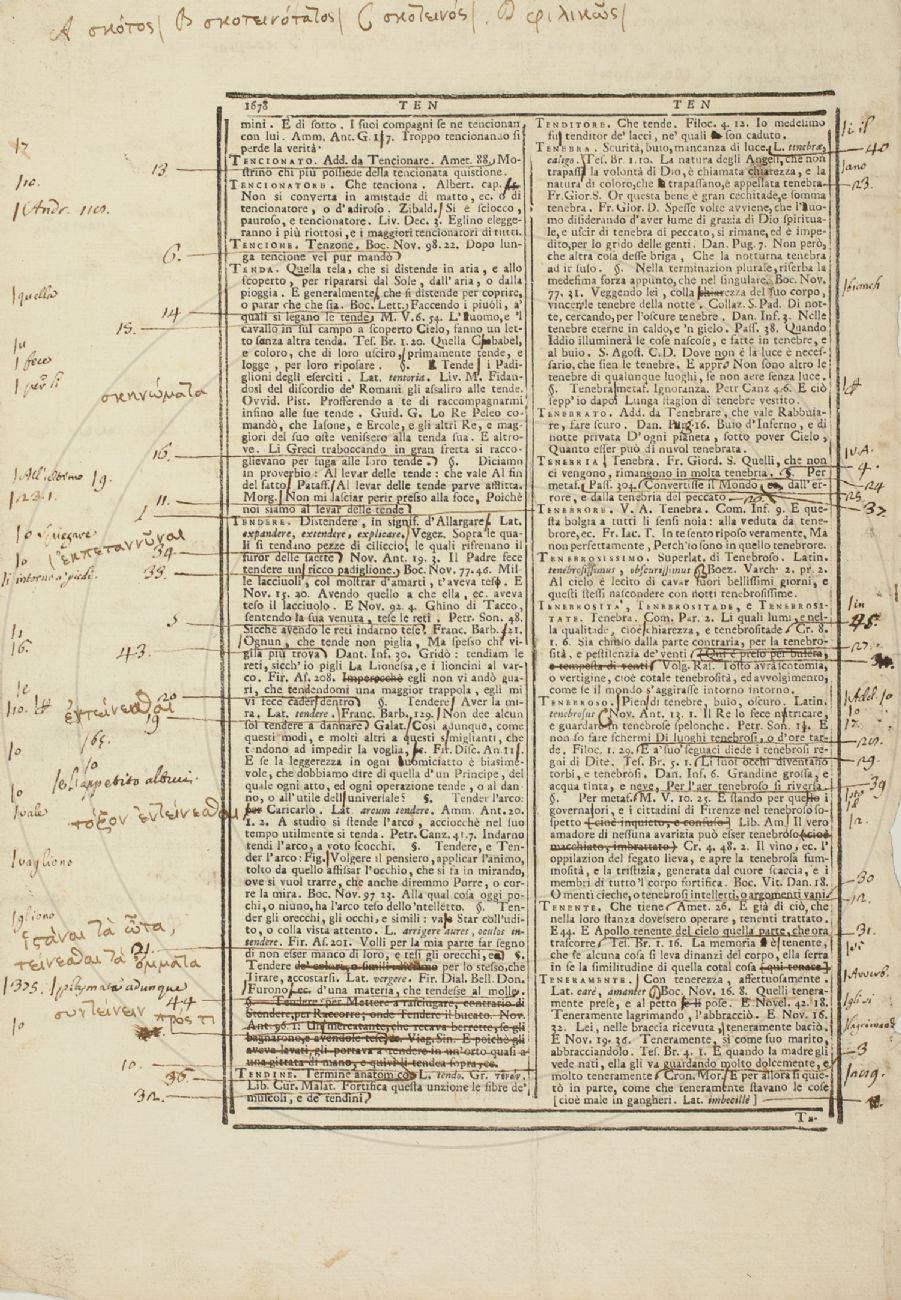 A σκότος/ B σκοτεινότατος/ C σκοτεινός/ . D φιλικῶς/
1678 TEN TEN
mini. E di sotto. I suoi compagni se ne tencionan,
con lui. Amm. Ant. G. 17. Troppo tencionando si
perde la verità.
TENCIONATO. Add. da Tencionare. Amet. 88. Mo-
strino chi più possiede della tencionata quistione.
TENCIONATORE. Che tenciona. Albert. cap.
Non si converta in amistade di matto, ec. o di
tencionatore, o d'adiroso. Zibald. Si è sciocco,
pauroso, e tencionatore. Liv. Dec. 3. Eglino elegge-
ranno i più riottosi, e i maggiori tencionatori di tutti.
TENCIONE. Tenzone. Boc. Nov. 98. 22. Dopo lun-
ga tencione vel pur mandò
TENDA. Quella tela, che si distende in aria, e allo
scoperto, per ripararsi dal Sole, dall'aria, o dalla
pioggia. E generalmente, che si distende per coprire,
o parar che che sia. Boc. Lett. Faccendo i piuòli, a
quali si legano le tende M. V. 6. 54. L'uomo, e 'l
cavallo in sul campo a scoperto Cielo, sanno un let-
to sanza altra tenda. Tes. Br. 1. 20. Quella babel,
e coloro, che di loro usciro primamente tende, e
logge, per loro riposare. §. Tende i Padi-
glioni degli eserciti. Lat. tentoria. Liv. M. Fidan-
dosi del discordio de' Romani gli assaliro alle tende.
Ovvid. Pist. Profferendo a te di raccompagnarmi
infino alle sue tende. Guid. G. Lo Re Peleo co-
mandò, che Iasone, e Ercole, e gli altri Re, e mag-
giori del suo oste venissero alla tenda sua. E altro-
ve. Li Greci traboccando in gran fretta si racco-
glievano per fuga alle loro tende. §. Diciamo
in proverbio: Al levar delle tende: che vale Al fin
del fatto Pataff. Al levar delle tende parve afflitta.
Morg. Non mi lasciar perir presso alla foce, Poichè
noi siamo al levar delle tende
TENDERE. Distendere, in signif. d'Allargare Lat.
expandere, extendere, explicare. Vegez. Sopra le qua-
li si tendano pezze di ciliccio, le quali rifrenano il
furor delle saette Nov. Ant. 19. 3. Il Padre fece
tendere un ricco padiglione. Boc. Nov. 77. 46. Mil-
le lacciuoli, col mostrar d'amarti, t'aveva tes. E
Nov. 15. 20. Avendo quello a che ella, ec. aveva
teso il lacciuolo. E Nov. 92. 4. Ghino di Tacco,
sentendo la sua venuta, tese le reti. Petr. Son. 48.
Sicchè avendo le reti indarno tese Franc. Barb. 21.
Ognun, che tende non piglia, Ma spesso chi vi-
glia più trova Dant. Inf. 30. Gridò: tendiam le
reti, sicch'io pigli La Lionessa, e i lioncini al var-
co. Fir. As. 208. Imperocchè egli non vi andò gua-
ri, che tendendomi una maggior trappola, egli mi
vi fece cader dentro §. Tendere Aver la mi-
ra, Lat. tendere. Franc. Barb. 129. Non dee alcun
sol tendere a piacere Galat. Così adunque, come
questi modi, e molti altri a questi simiglianti, che
tendono ad impedir la voglia, ec. Fir. Disc. An. 11
E se la leggerezza in ogni uomiciatto è biasime-
vole, che dobbiamo dire di quella d'un Principe, del
quale ogni atto, ed ogni operazione tende, o al dan-
no, o all'utile dell universale §. Tender l'arco:
Caricarlo. Lat. arcum tendere. Amm. Ant. 20.
1. 2. A studio si stende l'arco, acciocchè nel suo
tempo utilmente si tenda. Petr. Canz. 41. 7. Indarno
tendi l'arco, a voto scocchi. §. Tendere, e Ten-
der l'arco: Fig. Volgere il pensiero, applicar l'animo,
tolto da quello affissar l'occhio, che si fa in mirando,
ove si vuol trarre, che anche diremmo Porre, o cor-
re la mira. Boc. Nov. 97 23. Alla qual cosa oggi po-
chi, o niuno, ha l'arco teso dello 'ntelletto. §. Ten-
der gli orecchi, gli occhi, e simili: vale Star coll'udi-
to, o colla vista attento. L. arrigere aures, oculos in-
tendere. Fir. As. 201. Volli per la mia parte far segno
di non esser manco di loro, e tesi gli orecchi, §.
Tendere de' colori, o simili per lo stesso, che
Tirare, accostarsi. Lat. vergere. Fir. Dial. Bell. Don.
Furono, ec. d'una materia, che tendesse al molle.
§. Tendere per Mettere a rasciugare, contrario di
Stendere, per Raccorre; onde Tendere il bucato. Nov.
Ant. 96. 1. Un mercatante, che recava berrette, se gli
bagnarono, e avendole tese Viag. Sin. E poichè gli
aveva lavati, gli portava a tendere in un'orto quasi a
una gittata di mano, e quivi li tendea sopra, ec.
TENDINE. Termine anatom L. tendo. Gr. τένων.
Lib. Cur. Malat. Fortifica questa unzione le fibre de'
muscoli, e de tendini
TENDITORE. Che tende. Filoc. 4. 12. Io medesimo
fui tenditor de' lacci, ne' quali son caduto.
TENEBRA. Scurità, buio, mancanza di luce. L. tenebræ,
caligo. Tes. Br. 1. 10. La natura degli Angeli, che non
trapass la volontà di Dio, è chiamata chiarezza, e la
natura di coloro, che trapassano, è appellata tenebra.
Fr. Gior. S. Or questa bene è gran cechitade, e somma
tenebra. Fr. Gior. D. Spesse volte avviene, che l'uo-
mo disiderando d'aver lume di grazia di Dio spiritua-
le, e uscir di tenebra di peccato, si rimane, ed è impe-
dito, per lo grido delle genti. Dan. Pug. 7. Non però,
che altra cosa desse briga, Che la notturna tenebra
ad ir suso. §. Nella terminazion plurale, riserba la
medesima forza appunto, che nel singulare. Boc. Nov.
77. 31. Veggendo lei, colla chiarezza del suo corpo,
vincer le tenebre della notte. Collaz. S. Pad. Di not-
te, cercando, per l'oscure tenebre. Dan. Inf. 3. Nelle
tenebre eterne in caldo, e 'n gielo. Pass. 38. Quando
Iddio illuminerà le cose nascose, e fatte in tenebre, e
al buio. S. Agost. C. D. Dove non è la luce è neces-
sario, che sien le tenebre. E appr Non sono altro le
tenebre di qualunque luoghi, se non aere senza luce.
§. Tenebra metaf. Ignoranza. Petr Canz 4. 6. E ciò
sepp'io dapoi Lunga stagion di tenebre vestito.
TENEBRATO. Add. da Tenebrare, che vale Rabbuia-
re, fare scuro. Dan. Purg. 16. Buio d'Inferno, e di
notte privata D'ogni pianeta, sotto pover Cielo,
Quanto esser può di nuvol tenebrata.
TENEBRIA Tenebra. Fr. Giord. S. Quelli, che non
ci vengono, rimangono in molta tenebria. §. Per
metaf. Pass. 304. Convertisse il Mondo, ec. dall'er-
rore, e dalla tenebria del peccato
TENEBRORE. V. A. Tenebra. Com. Inf. 9. E que-
sta bolgia a tutti li sensi noia: alla veduta da tene-
brore, ec. Fr. Iac. T. In te sento riposo veramente, Ma
non perfettamente, Perch'io sono in quello tenebrore.
TENEBROSISSIMO. Superlat. di Tenebroso. Latin.
tenebrosissimus, obscurissimus Boez. Varch. 2. pr. 2.
Al cielo è lecito di cavar fuori bellissimi giorni, e
questi stessi nascondere con notti tenebrosissime.
TENEBROSITA', TENEBROSITADE, e TENEBROSI-
TATE. Tenebra. Com. Par. 2. Li quali lumi, e nel-
la qualitade, cioè chiarezza, e tenebrositade Cr. 8.
1. 6. Sia chiuso dalla parte contraria, per la tenebro-
sità, e pestilenzia de' venti (Qui è preso per bufera,
e tempesta di venti) Volg. Ras. Tosto avrà scotomia,
o vertigine, cioè cotale tenebrosità, ed avvolgimento,
come se il mondo s'aggirasse intorno intorno.
TENEBROSO. Pien di tenebre, buio, oscuro. Latin.
tenebrosus Nov. Ant. 13. 1. Il Re lo fece nutricare,
e guardare in tenebrose spelonche. Petr. Son. 15. E
non so fare schermi Di luoghi tenebrosi, o d'ore tar-
de. Filoc. 1. 29. E a' suo' seguaci diede i tenebrosi re-
gni di Dite. Tes. Br. 5. 1. Li suoi occhi diventano
torbi, e tenebrosi. Dan. Inf. 6. Grandine grossa, e
acqua tinta, e neve, Per l'aer tenebroso si riversa.
§. Per metaf. M. V. 10. 25. E stando per quello i
governatori, e i cittadini di Firenze nel tenebroso so-
spetto (cioè inquieto, e confuso) Lib. Am. Il vero
amadore di nessuna avarizia può esser tenebroso (cioè
macchiato, imbrattato) Cr. 4. 48. 2. Il vino, ec. l'
oppilazion del fegato lieva, e apre la tenebrosa fum-
mosità, e la tristizia, generata dal cuore scaccia, e i
membri di tutto 'l corpo fortifica. Boc. Vit. Dan. 18.
O menti cieche, o tenebrosi intelletti, o argomenti vani
TENENTE. Che tiene Amet. 26. E già di ciò, che
nella loro stanza dovessero operare, tenenti trattato.
E 44. E Apollo tenente del cielo quella parte, che ora
trascorre Tes. Br. 1. 16. La memoria è tenente,
che se alcuna cosa si leva dinanzi del corpo, ella serra
in se la similitudine di quella cotal cosa (qui tenace)
TENERAMENTE. Con tenerezza, affettuosamente.
Lat. carè, amanter Boc. Nov. 16. 8. Quelli tenera-
mente prese, e al petto se li pose. E Novel. 42. 18.
Teneramente lagrimando, l'abbracciò. E Nov. 16.
32. Lei, nelle braccia ricevuta, teneramente baciò.
E Nov. 19. 36. Teneramente, si come suo marito,
abbracciandolo. Tes. Br. 4. 1. E quando la madre gli
vede nati, ella gli va guardando molto dolcemente, e
molto teneramente Cron. Mor. E per allora si quie-
tò in parte, come che teneramente stavano le cose
[cioè male in gangheri. Lat. imbecillè]
Te-
13
6.
quella
14
15.
fece
σκηνώματα
16.
All'ultimo 19.
11.
Spiegare
ἐκπεταννῦναι
34
33.
5
43.
20
ἐντείνεσθαι
19
165.
l'appetito altrui.
vale
τόξον ἐντείνεσθαι
vagliono
ἱστάναι τὰ ὦτα,
τείνεσθαι τὰ ὄμματα
21.
44
συντείνειν πρός τι
10.
36.
32.
40
23.
bianch
V. A.
4.
24
25.
26.
37
45.
27.
28.
29.
39
30
31.
Avverb.
3